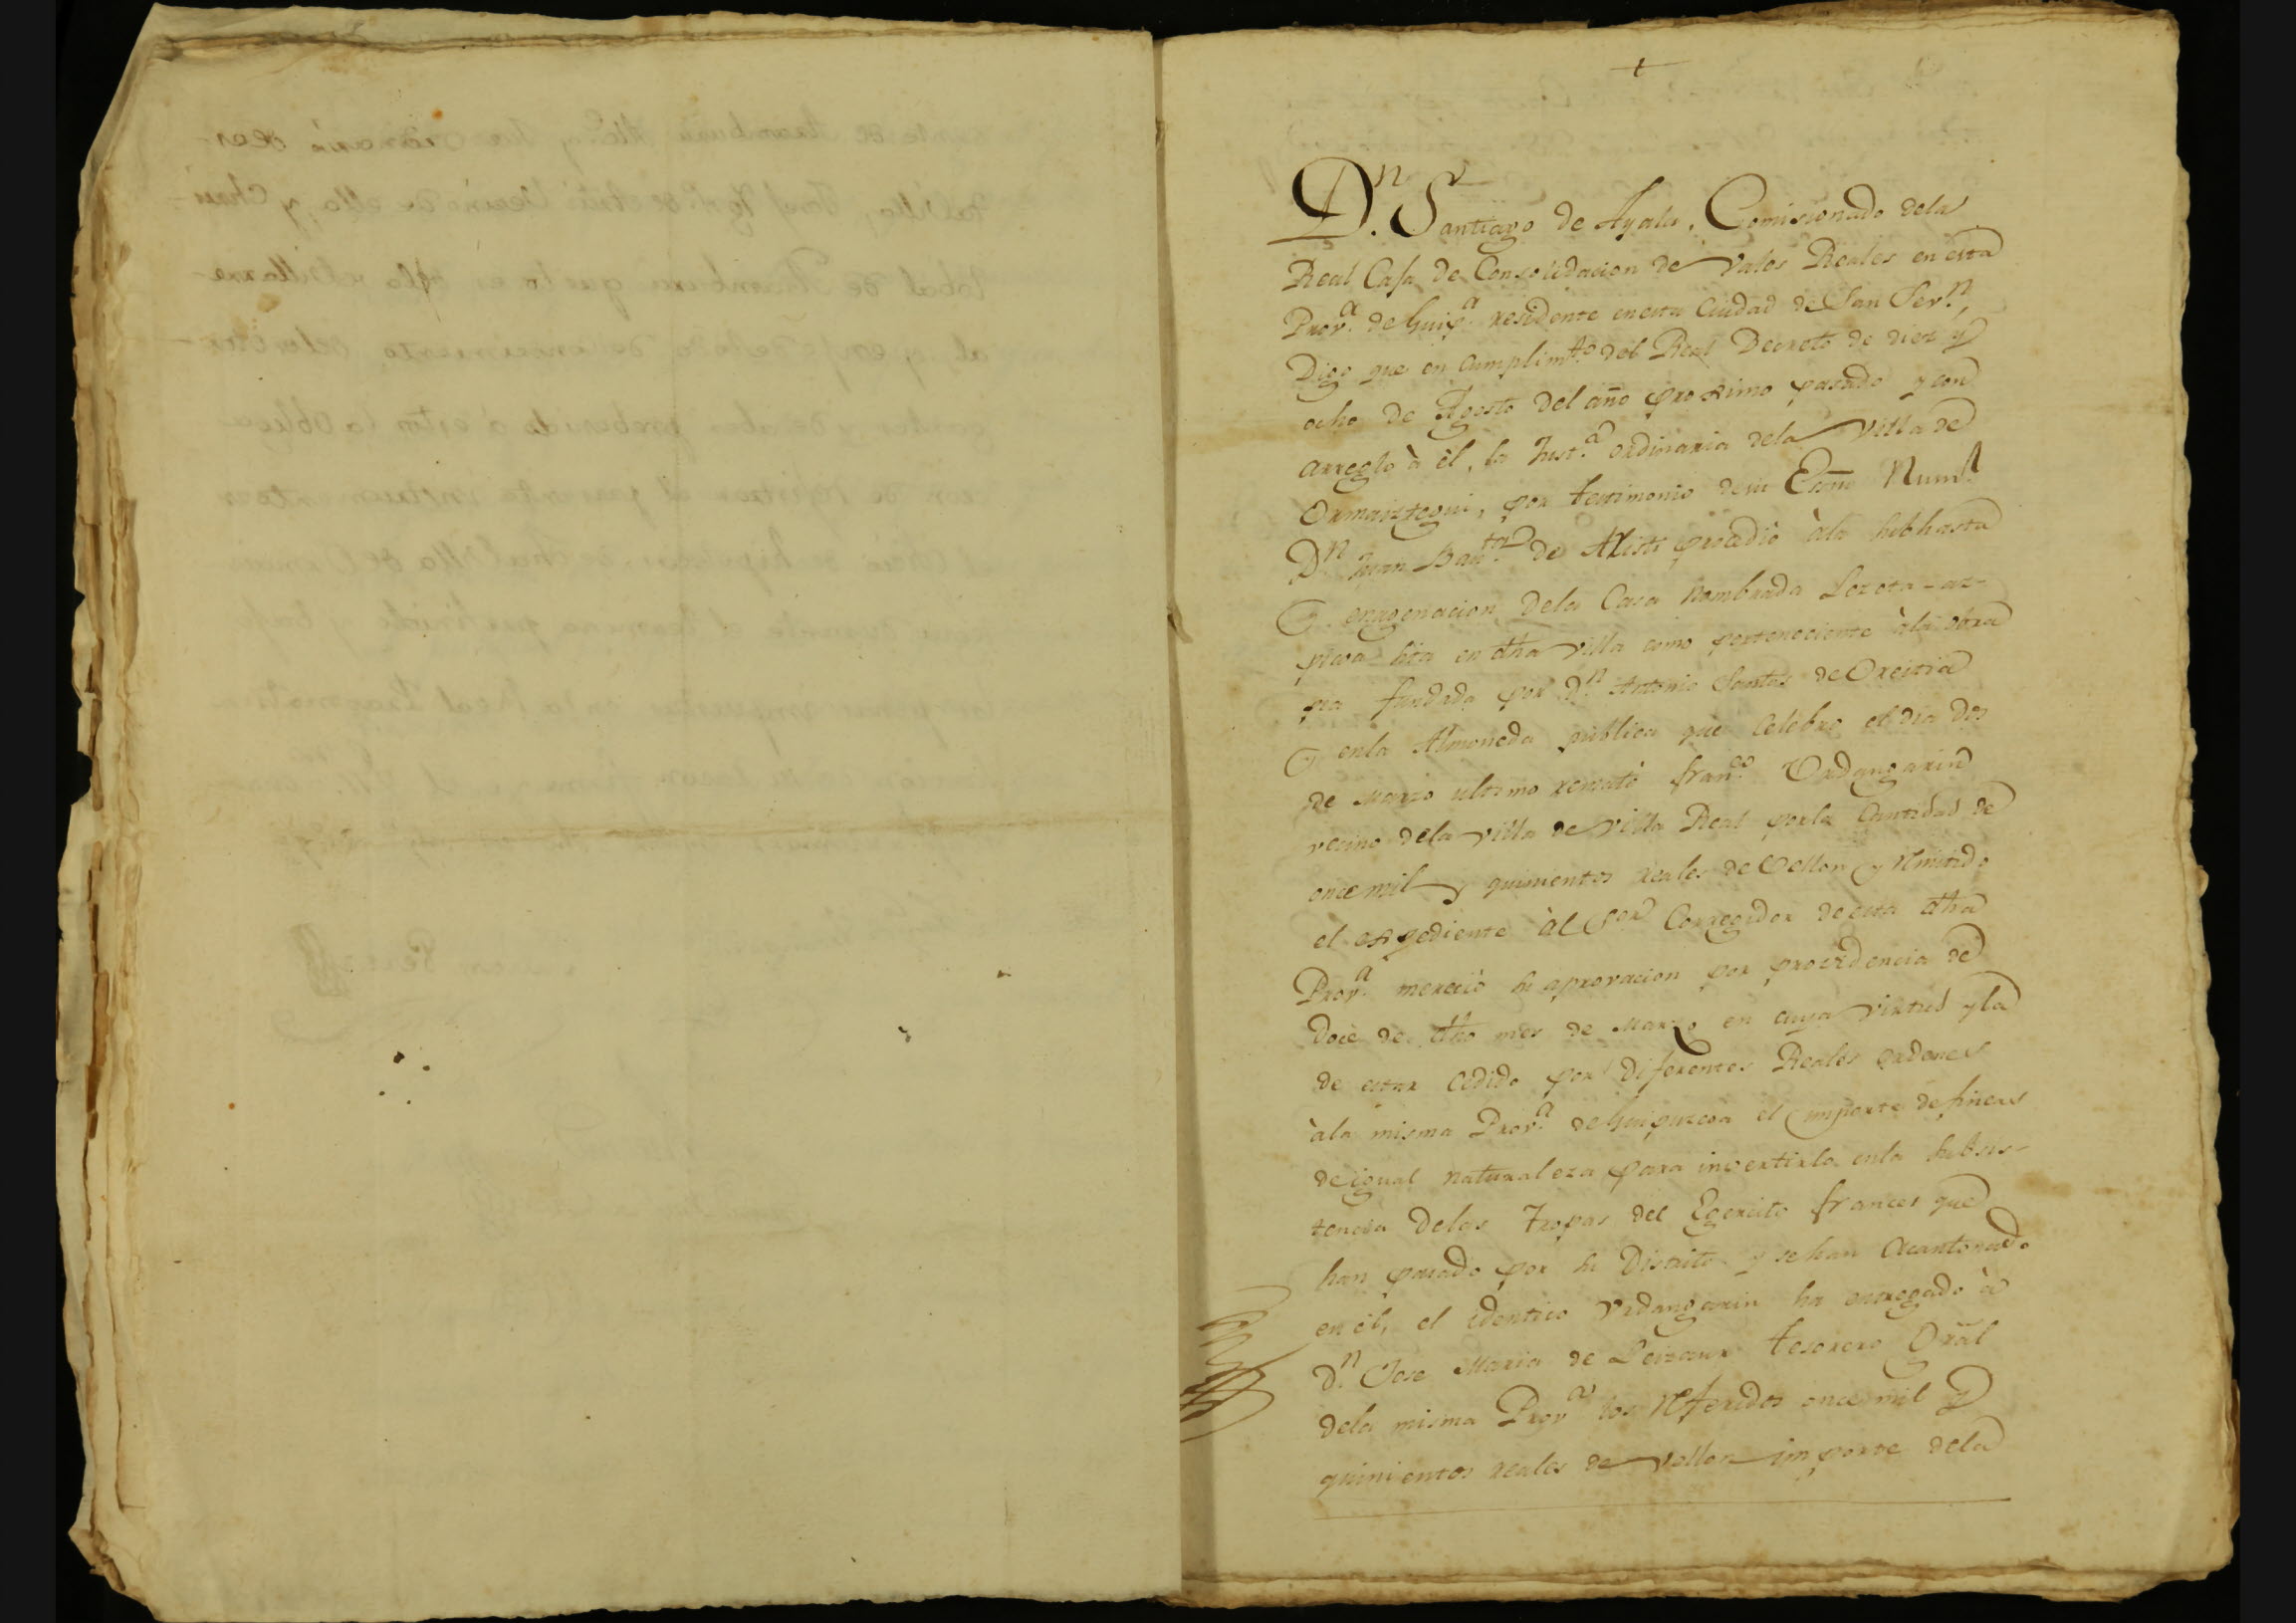 +
D.n Santiago de Ayala, Comisionado dela
Real Caja de Consolidacion de Vales Reales en esta
Prov.a de Guip.a residente en esta Ciudad de San Sev.n,
Digo que en cumplim.to del Real Decreto de diez y
ocho de Agosto del año proximo pasado y con
arreglo à él, la Just.a ordinaria dela Villa de
Ormaiztegui, por testimonio de su Esno Num.l
D.n Juan Baut.ta de Aristi procedió àla subhasta
y enagenacion dela Casa nombrada Lozota-az-
picoa sita en dha Villa como perteneciente àla obra
pia fundada por D.n Antonio Santos de Oreitia
y enla Almoneda publica que celebro el dia dos
de Marzo ultimo remató fran.co Urdangarin
vecino dela villa de Villa Real porla Cantidad de
once mil y quinientos reales de Vellon y remitido
el expediente àl S.or Corregidor de esta dha
Prov.a mereció su aprovacion por providencia de
doce de dho mes de Marzo en cuya virtud y la
de estar cedido por diferentes Reales ordenes
àla misma Prov.a de Guipuzcoa el importe de fincas
de igual naturaleza para invertirlo enla subsis-
tencia delas tropas del Egercito frances que
han pasado por su Distrito y se han acantonado
en él, el identico Urdangarin ha entregado à
D.n Jose Maria de Leizaur tesorero Gral
dela misma Prov.a los referidos once mil y
quinientos reales de vellon importe dela